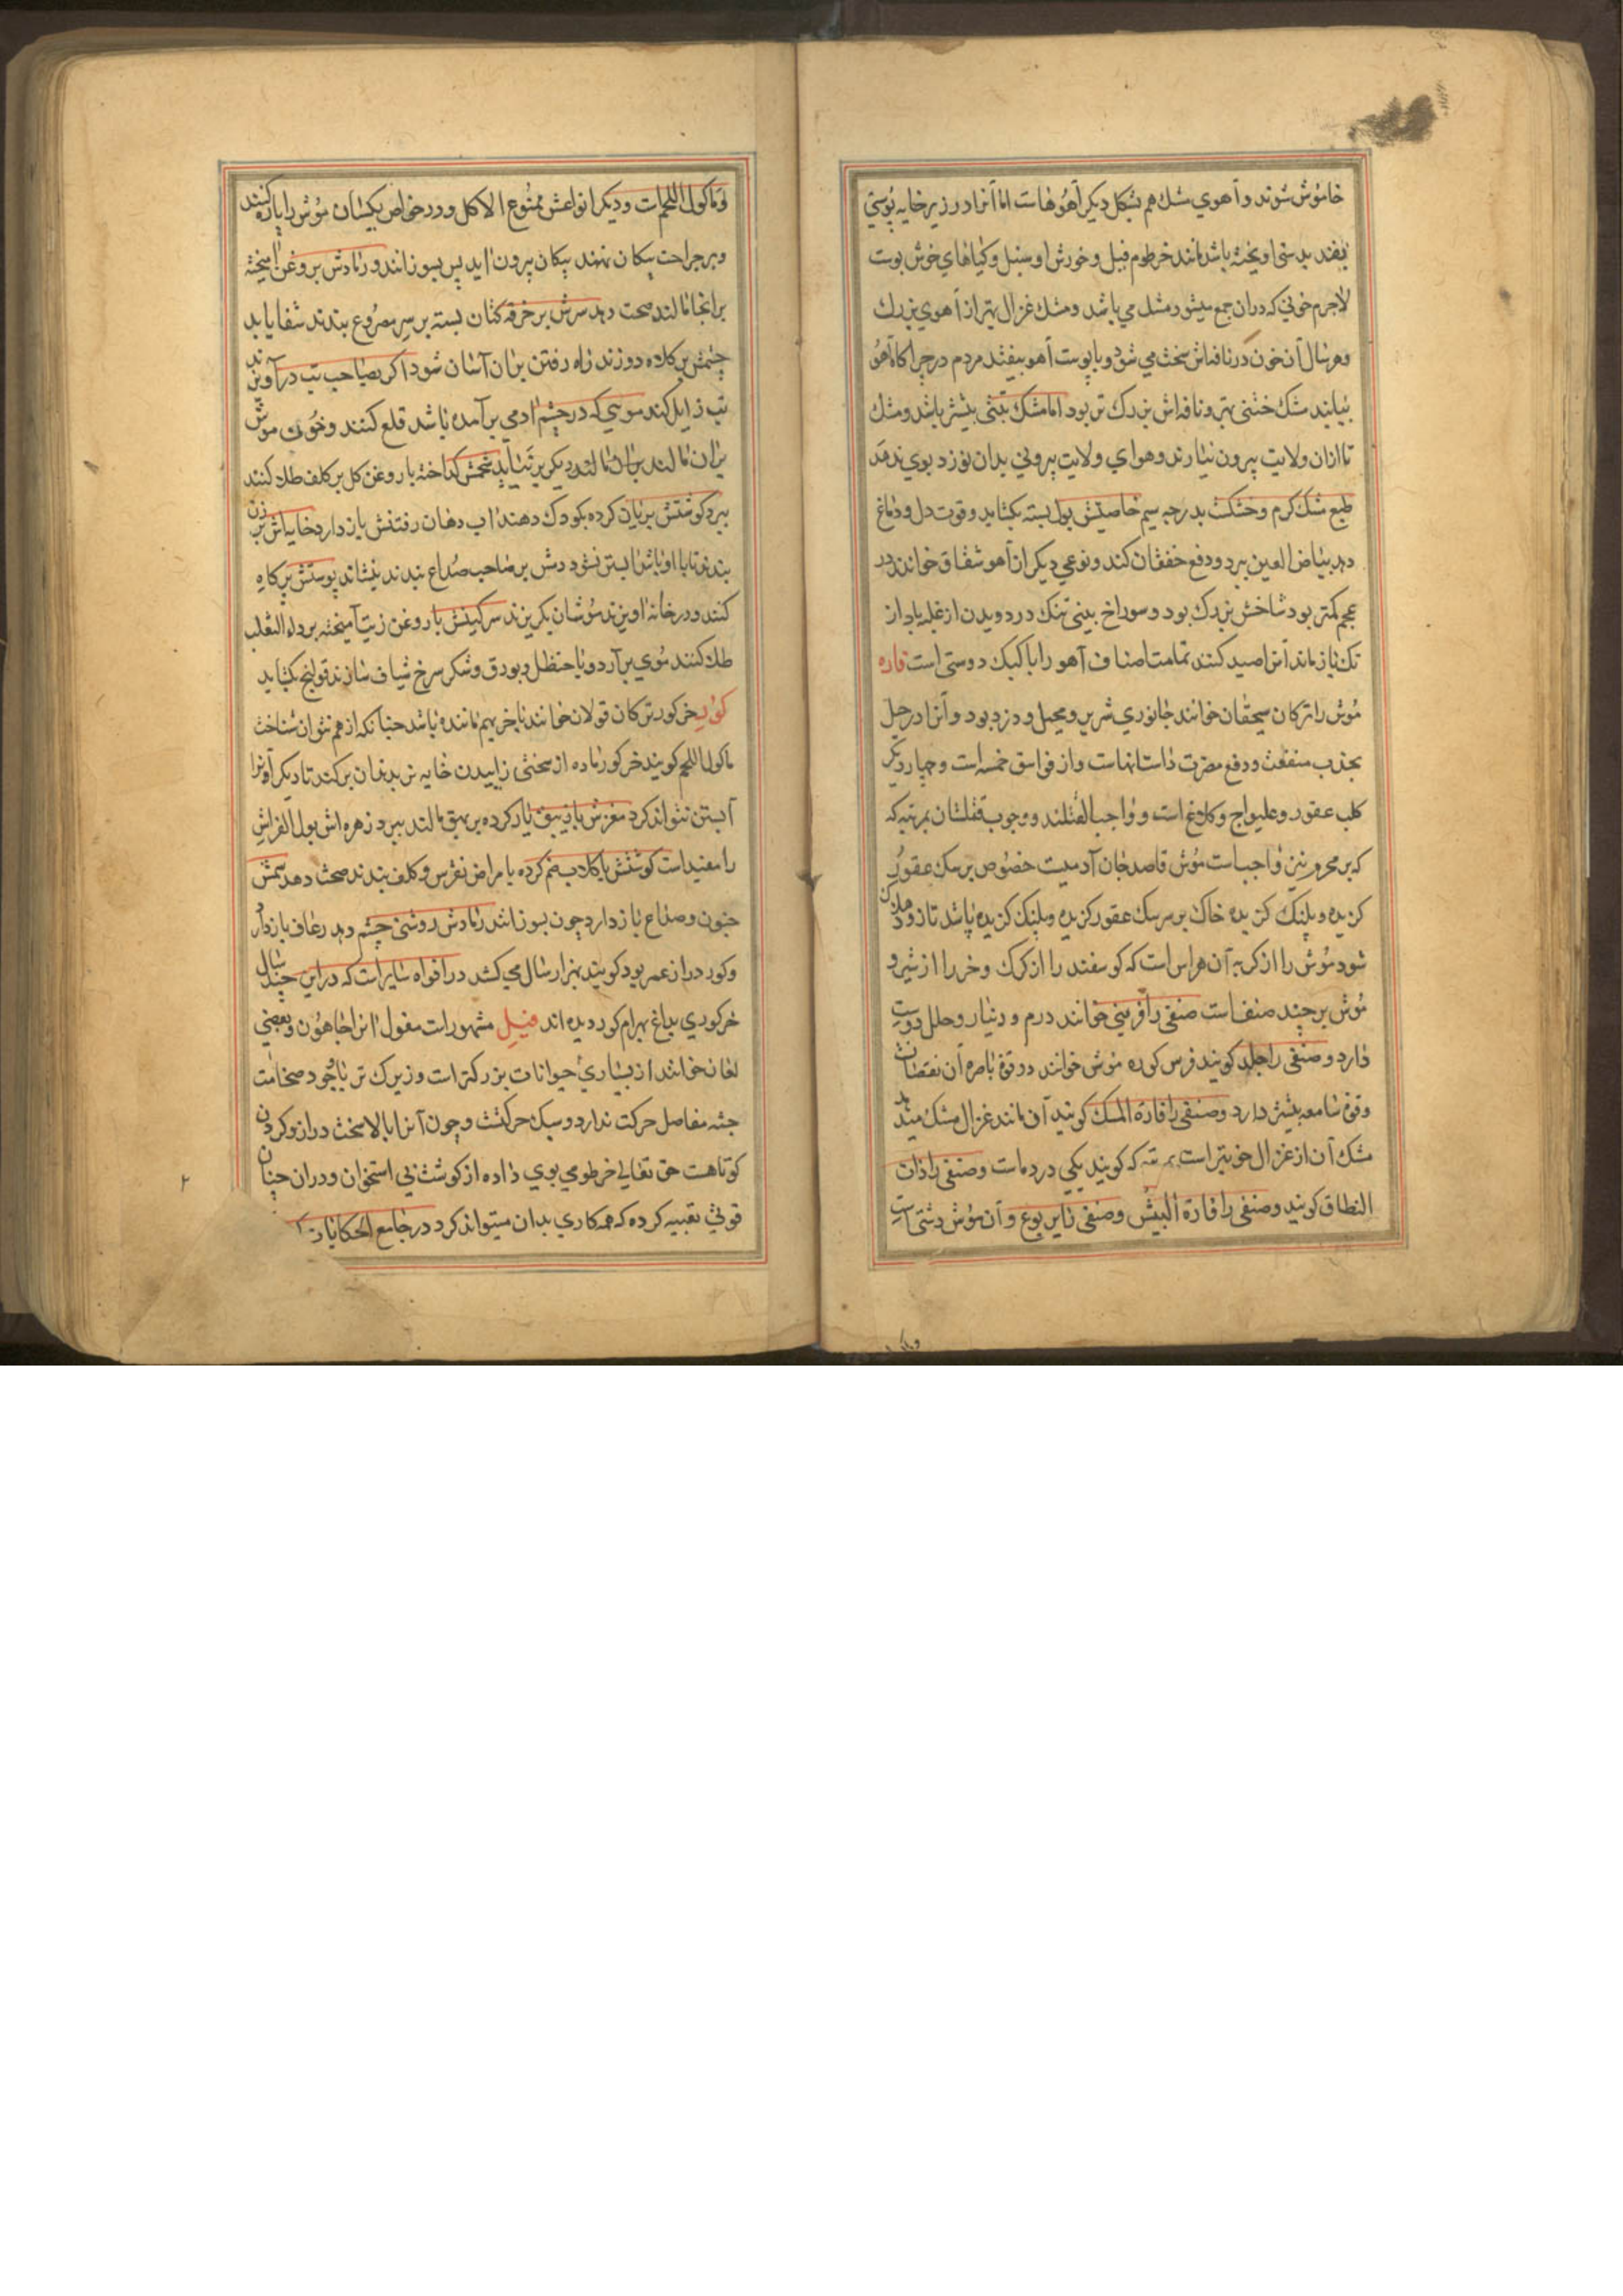 خاموش شوند و آهوي مشك هم بشكل ديكر آهوهاست اما آنرا در زير خايه پوستي
بقدر بدستي اويخته باشد مانند خرطوم فيل و خورش او سنبل و كياهاي خوش بوست
لاجرم خوني كه دران جمع ميشود مشك مي باشد و مشك غزال بهتر از آهوي بزرك
و هر سال آن خون در نافه اش سخت مي شود و با پوست آهو بيفتد مردم در چراكاه آهو
بيابند مشك ختني بهتر و نافه اش بزرك تر بود اما مشك تبتي بيشتر باشد و مشك
تا ازان ولايت بيرون نيارند و هواي ولايت بيروني بدان نوزد بوي ندهد
طبع مشك كرم و خشكست بدرجه سيم خاصيتش بول بسته بكشايد و قوت دل و دماغ
دهد بياض العين ببرد و دفع خفقان كند و نوعي ديكر از آهو شقاق خوانند در
عجم كمتر بود شاخش بزرك بود و سوراخ بيني تنك در دويدن از غلبه باد از
تك باز ماند آنرا صيد كنند تمامت اصناف آهو را با كبك دوستي است فاره
موش را تركان سيچقان خوانند جانوري شرير و محيل و دزد بود و آنرا در حيل
بجذب منفعت و دفع مضرت داستانهاست و از فواسق خمسه است و چهار ديكر
كلب عقور و غليواج و كلاغ است و واجب القتلند و وجوب قتلشان بمرتبه كه
كه بر محرم نيز واجب است موش قاصد جان آدميست خصوص بر سك عقور
كزيده و پلنك كزيده خاك بر سر سك عقور كزيده و پلنك كزيده پاشد تا زود هلاك
شود موش را از كربه آن هراس است كه كوسفند را از كرك و خر را از شير و
موش بر چند صنف است صنفي را قرنبي خوانند درم و دينار و حلل دوست
دارد و صنفي را جلد كويند فرس كوره موش خوانند در قوة باصره آن نقصانست
وقوة سامعه بيش دارد و صنفي را فارة المسك كويند آن مانند غزال مشك ميدهد
مشك آن از غزال خوبتر است بمرتبه كه كويند يكي در دماست و صنفي را ذات
النطاق كويند و صنفي را فارة البيش و صنفي را يربوع و آن موش دشتي است
و ماكول اللحم است و ديكر انواعش ممنوع الاكل و در خواص يكسان موش را پاره كنند
و بر جراحت پيكان نهند پيكان بيرون ايد پس بسوزانند و رمادش بروغن اميخته
برانجا مالند صحت دهد سرش بر خرقه كتان بسته بر سر مصروع بندند شفا يابد
چشمش بر كلاه دوزند راه رفتن بران آسان شود اكر بصاحب تب درآويزند
تب زايل كند مويي كه در چشم ادمي برآمده باشد قلع كنند و خون موش
بران مالند ديكر برنيايد شحمش كداخته با روغن كل بر كلف طلا كنند
ببرد كوشتش بريان كرده بكودك دهند اب دهان رفتنش باز دارد خايه اش بر زن
بندند تا با او باشد ابستن نشود دمش بر صاحب صداع بندند بنشاند پوستش پر كاه
كنند و در خانه اويزند موشان بكريزند سركينش با روغن زيت آميخته بر داء الثعلب
طلا كنند موي برآرد و با حنظل و بورق و شكر سرخ شياف سازند قولنج بكشايد
كور خر كور تركان قولان خوانند با خر بهم مانند باشد چنانكه از هم نتوان شناخت
ماكول اللحم كويند خر كور ماده از سختي زاييدن خايه نر بدندان بركند تا ديكر او را
آبستن نتواند كرد مغزش با زيبق يار كرده بر بهق مالند ببرد زهره اش بول الفراش
را مفيد است كوشتش با كلاب ضم كرده بامراض نقرس و كلف بندند صحت دهد سمش
جنون و صداع باز دارد چون بسوزانند رمادش روشني چشم دهد رعاف باز دارد
و كور دراز عمر بود كويند بهزار سال مي كشد در افواه سايراست كه دراين چند سال
خر كوري بداغ بهرام كور ديده اند فيل مشهور است مغول انرا جاهون و بعضي
لغان خوانند از بسياري حيوانات بزركتر است و زيرك تر با وجود ضخامت
جثه مفاصل حركت ندارد و سبك حركتست و چون آنرا بالا سخت دراز و كردن
كوتاهست حق تعالي خرطومي بوي داده از كوشت بي استخوان و دران چنان
قوتي تعبيه كرده كه همه كاري بدان ميتواند كرد در جامع الحكايات